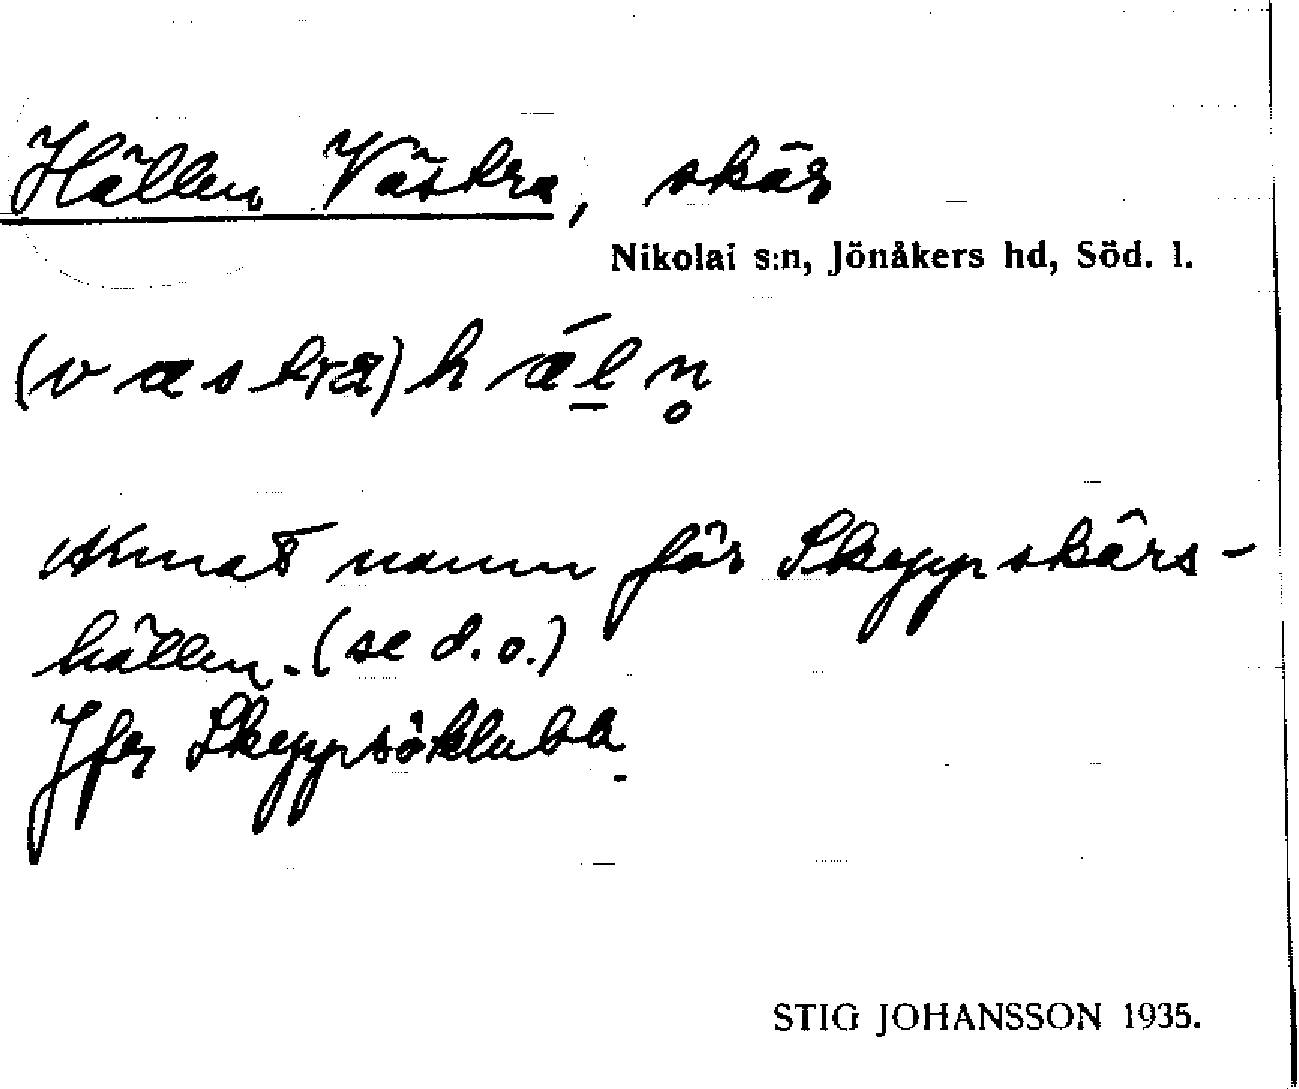 Hällen Västra, skär
Nikolai s:n, Jönåkers hd, Söd. l.
(væstra) hǽl̲n̥
Annat namn för Skeppskärs-
hällen. (se d.o.)
Jfr Skeppsöklubb.
STIG JOHANSSON 1935.